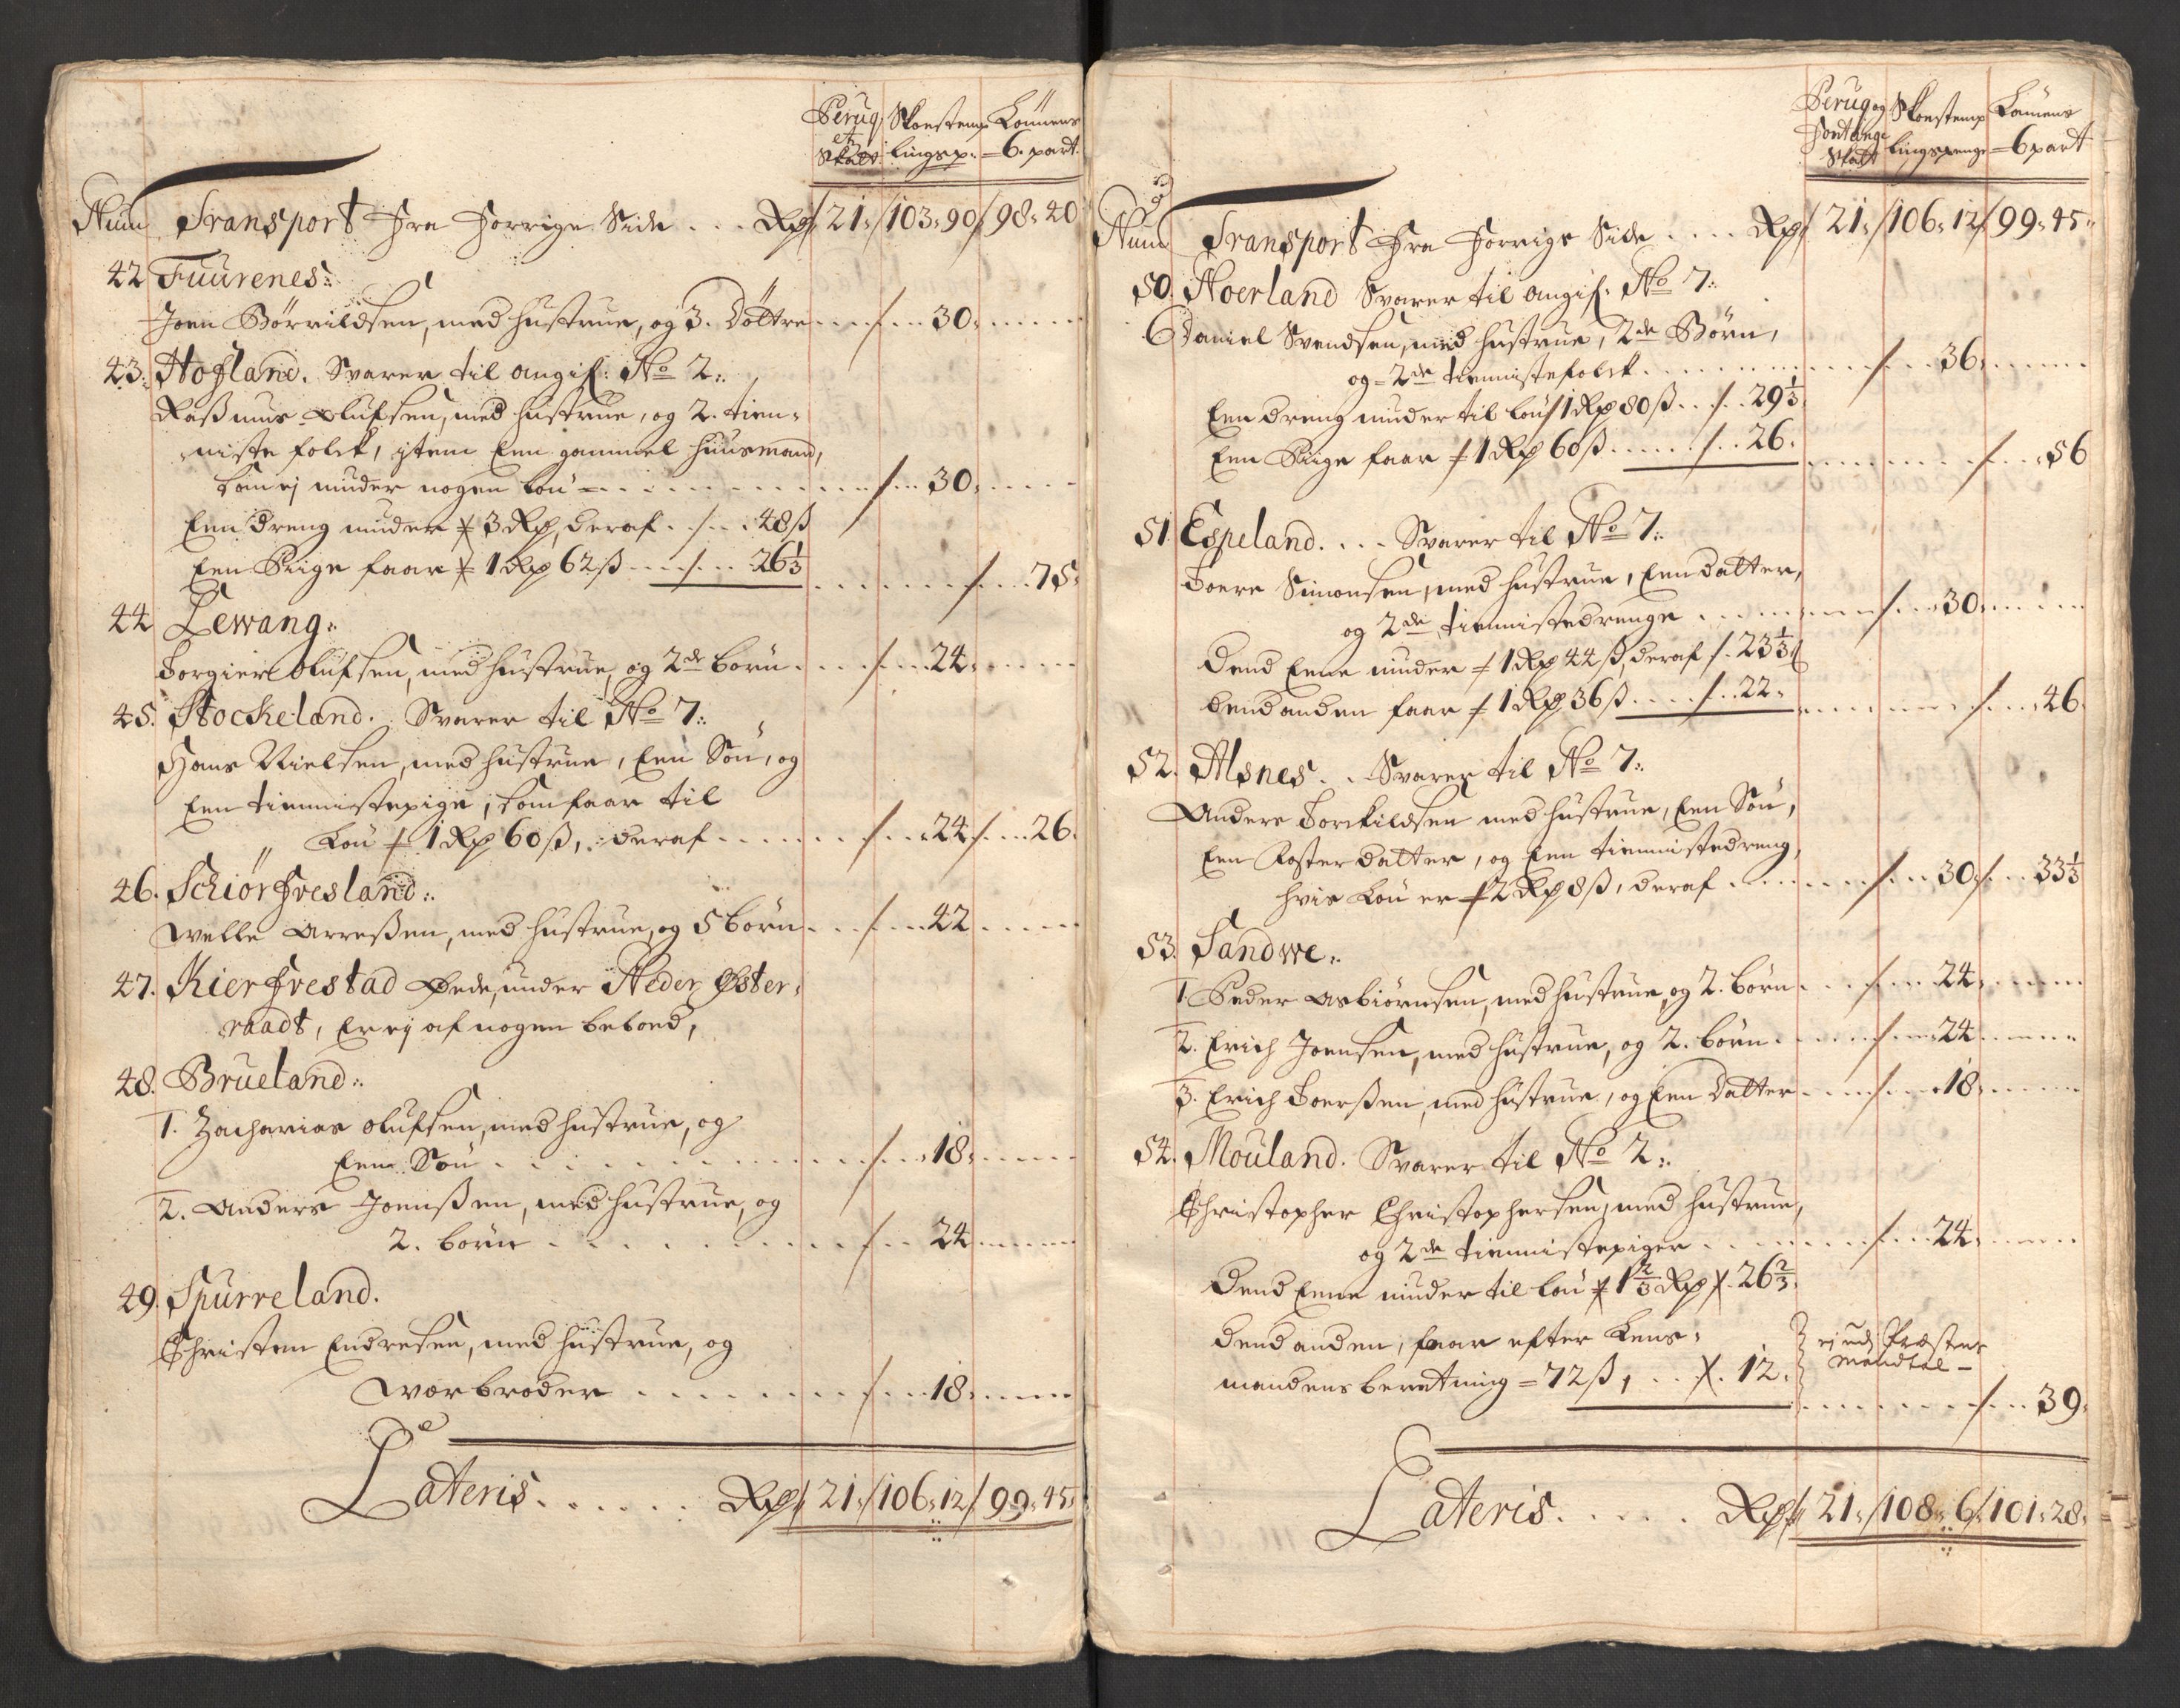 Peruq Skoestemp Lönnens
etc Skatt lingsp: 6. part
Num Transport Fra Forrige Side . . . Rdr 21, / 103, 90 / 98, 40
42 Fuurenes:
Joen Börrildsen, med hustrue, og 3. Döttre . . . / . . 30,
43. Hofland. Svarer til angif: No 2:
Rasmus Olufsen, med hustrue, og 2. tien-
niste folck, item Een gammel huusmand,
som ej nyder nogen lön . . . / . . 30,
Een dreng nyder / 3 Rdr, deraf . / . . 48 ß
Een Piige faar / 1 Rdr 62 ß . . . / . . 26 1/3 . . . / . . 75,
44 Lewang:
Torgier Olufsen, med hustrue, og 2de börn . . . / . . 24,
45. Stockeland. Svarer til No 7:
Hans Nielsen, med hustrue, Een Sön, og
Een tiennistepige, som faar til
Lön / 1 Rdr 60 ß, deraf . . . / . . 24 / . . 26.
46. Schiörfresland:
Welle Arreßen, med hustrue, og 5 börn . . . / . . 42
47. Kierfrestad Öde, under Neder Öster-
raadt, Er ej af nogen beboed,
48. Brueland:
1. Zacharias Olufsen, med hustrue, og
Een Sön . . . / . . 18,
2. Anders Joenßen, med hustrue, og
2. börn . . . / . . 24
49. Spurreland.
Christen Endresen, med hustrue, og
Worbroder . . . / . . 18,
Lateris . . . . . . Rdr 21, / 106, 12 / 99, 45,
Perug og Skoestemp Lönnens
Fontange Skatt lingspenge 6 part
Num Transport Fra Forrige Side . . . . Rdr 21, / 106, 12 / 99, 45,
50. Noerland Svarer til angif: No 7:
Daniel Svendsen, med hustrue, 2de Börn,
og 2de tiennistefolck . . . / . . 36,
Een dreng nyder til lön / 1 Rdr 80 ß . . / . . 29 1/3
Een Piige faar / 1 Rdr 60 ß . . . / . . 26. . . . / . . 56
51 Espeland. . . . Svarer til No 7:
Toere Simonsen, med hustrue, Een datter,
og 2de tiennistedrenge . . . / . . 30,
Dend Eene nyder / 1 Rdr 44 ß, deraf / . 23 1/3
dend anden faar / 1 Rdr 36 ß . . . / . . 22 . . . / . . 46.
52. Alsnes . . Svarer til No 7:
Anders Torkildsen med hustrue, Een Sön,
Een Foster datter, og Een tiennistedreng,
hvis Lön er / 2 Rdr 8 ß, deraf . . . / . . 30, / . . 33 1/3
53. Sandwe:
1. Peder Asbiörnsen, med hustrue, og 2. börn . . . / . . 24,
2. Erich Joensen, med hustrue, og 2. börn . . . / . . 24
3. Erich Toerßen, med hustrue, og Een Datter . . . / . . 18,
54. Mouland. Svarer til No 2:
Christopher Christophersen, med hustrue,
og 2de tiennistepiger . . . / . . 24,
Dend Eene nyder til lön / 1 2/3 Rdr / . 26 2/3,
dend anden, faar efter Lens-
mandens beretning = 72 ß, . . / . 12. } ej udj Præstens
Mandtal –
. . . / . . 39,
Lateris . . . . . Rdr 21, / 108, 6 / 101, 28,